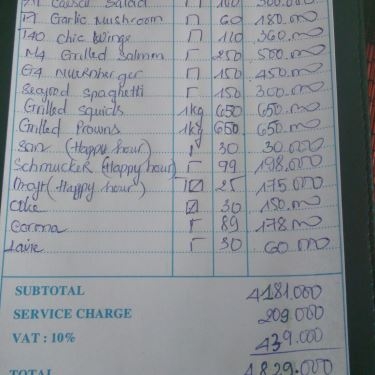 Salad 100 300.000
Garlic Mushroom 60 180.000
T40 Chic Wings 120 360.000
M4 Grilled Salmon 250 500.000
G4 Nuernberger 150 450.000
Seafood Spaghetti 150 300.000
Grilled Squids 1kg 650 650.000
Grilled Prawns 1kg 650 650.000
San (Happy hour) 30 30.000
Schmucker (Happy hour) 99 198.000
(Happy hour) 25 175.000
Coke 30 150.000
Corona 89 178.000
Lavie 30 60.000
SUBTOTAL 4181.000
SERVICE CHARGE 209.000
VAT : 10% 439.000
TOTAL 4829.000